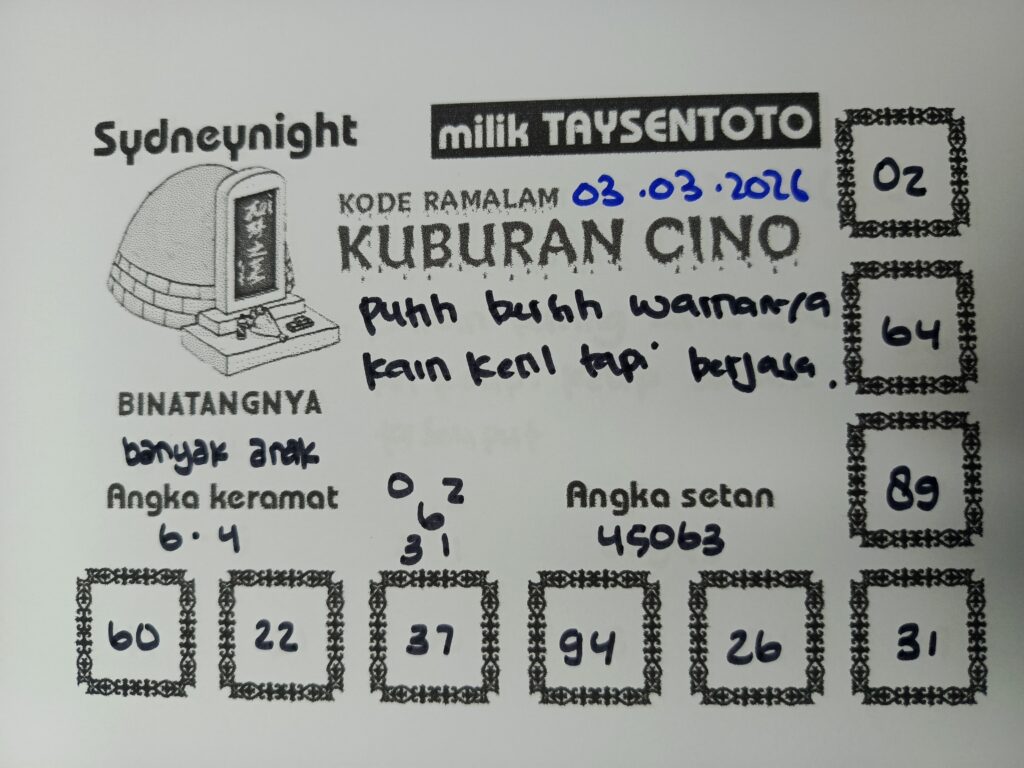 Sydneynight
milik TAYSENTOTO
KODE RAMALAM 03.03.2026
KUBURAN CINO
putih bersih warnanya
kain kecil tapi berjasa.
BINATANGNYA
banyak anak
Angka keramat
6.4
0 2
6
31
Angka setan
45063
02
64
89
60 22 37 94 26 31